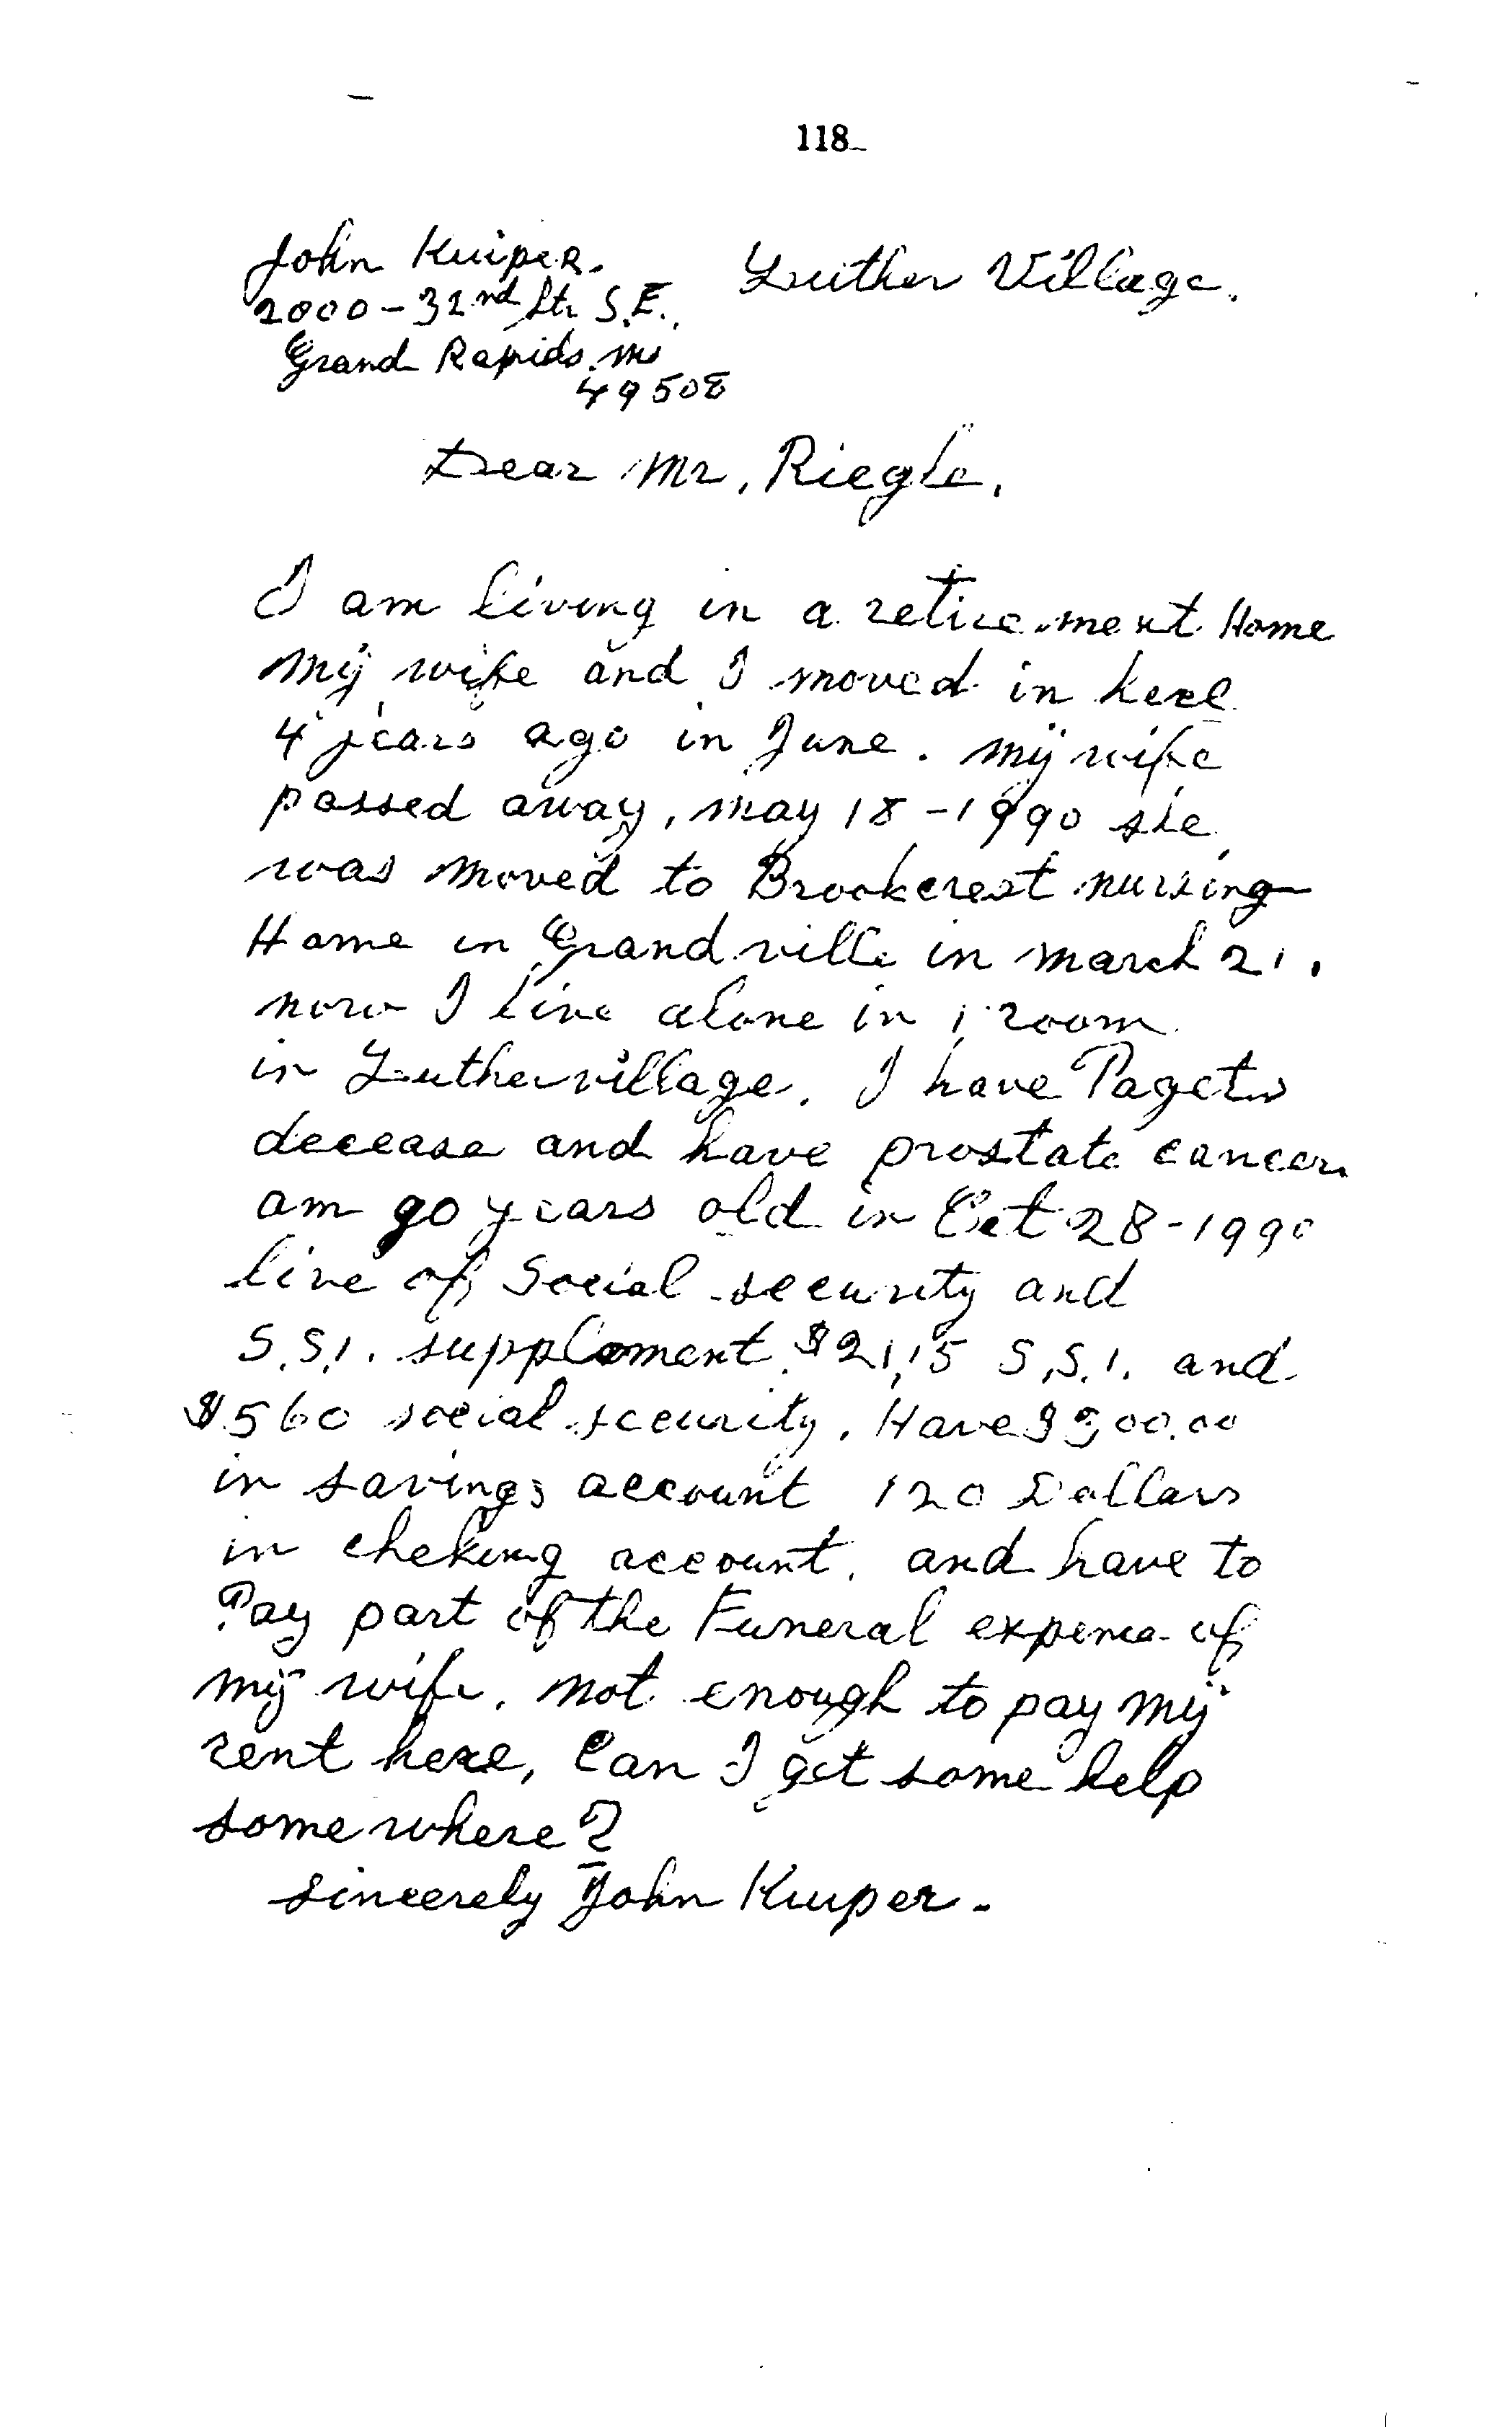 118
John Kuiper. Luther Village.
2000-32nd Str S.E.
Grand Rapids. Mi
49508
Dear Mr, Riegle,
I am living in a retirement Home
my wife and I moved in here
4 years ago in June. my wife
passed away, may 18-1990 she
was moved to Brookcrest nursing
Home in Grandville in march 21.
now I live alone in 1 room
in Luthervillage. I have Pagets
decease and have prostate cancer.
am 90 years old in Oct 28-1990
live of Social security and
S.S.I. supplement. $21,15 S.S.I. and
$560 social security. Have
in savings account 120 Dollars
in cheking account, and have to
Pay part of the Funeral expense of
my wife. not enough to pay my
rent here, Can I get some help
somewhere?
sincerely John Kuiper.